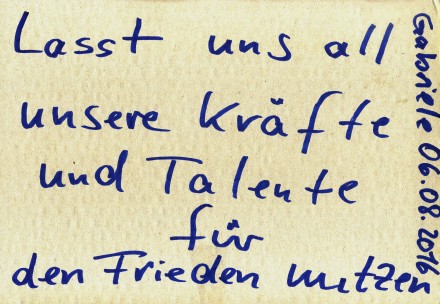 Lasst uns all
unsere Kräfte
und Talente
für
den Frieden nutzen
Gabriele 06.08.2016